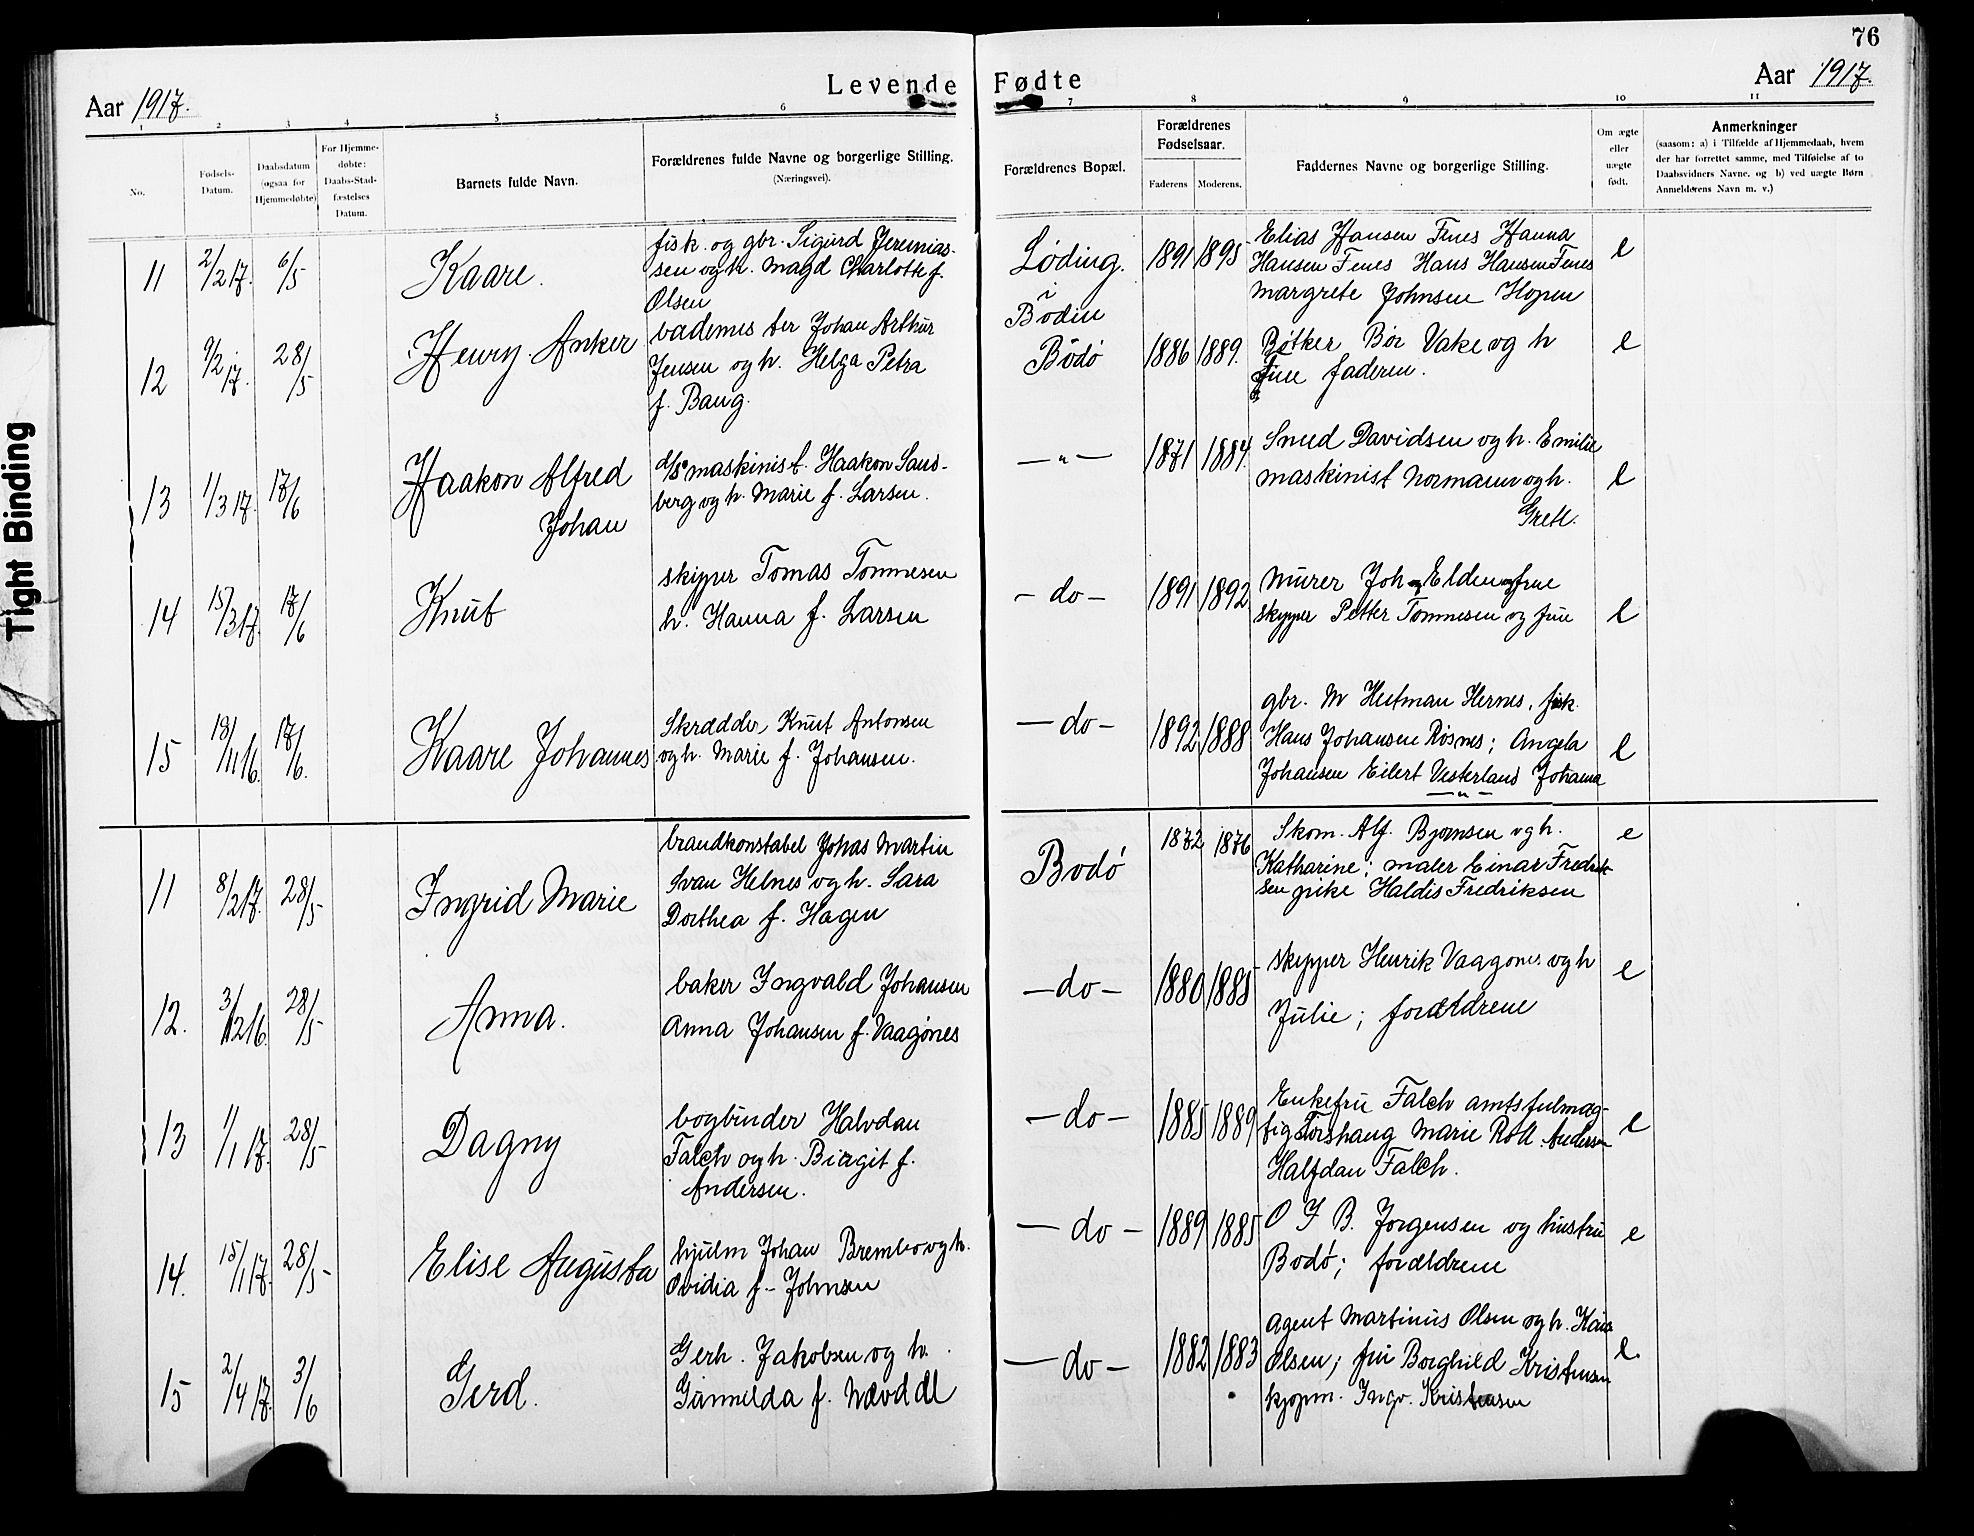 76
Levende Fødte
Aar 1917.
Aar 1917.
1 2 3 4 5 6 7 8 9 10 11
No.
Fødsels-
Datum.
Daabsdatum
(ogsaa for
Hjemmedøbte)
For Hjemme-
døbte:
Daabs-Stad-
fæstelses
Datum.
Barnets fulde Navn.
Forældrenes fulde Navne og borgerlige Stilling.
(Næringsvei).
Forældrenes Bopæl.
Forældrenes
Fødselsaar.
Faderens Moderens.
Faddernes Navne og borgerlige Stilling.
Om ægte
eller
uægte
født.
Anmerkninger
(saasom: a) i Tilfælde af Hjemmedaab, hvem
der har forrettet samme, med Tilføielse af to
Daabsvidners Navne, og b) ved uægte Børn
Anmelderens Navn m. v.)
11 2/2 17. 6/5 Kaare.
fisk. og gbr. Sigurd Jeremias-
sen og h. Magd Charlotte f.
Olsen
Løding.
i
Bodin
1891 1895
Elias Hansen Fenes Hanna
Hansen Fenes Hans Hansen Fenes
Margrete Johnsen Hopen
e
12 9/2 17. 28/5 Henry Anker
Johan Arthur
Jensen og h. Helga Petra
f. Bang.
Bodö 1886 1889.
Bøtker Vake og h
faderen.
e
13 1/3 17. 17/6 Haakon Alfred
Johan
d/s maskinist. Haakon Sand-
berg og h. Marie f. Larsen.
— " — 1871 1884.
Smed Davidsen og h. Emilie
maskinist Normann og h.
e
14 15/3 17. 17/6 Knut
skipper Tomas Tommesen
h. Hanna f. Larsen
- do - 1891 1892
Murer Joh Elden og frue
skipper Petter Tommesen og frue
e
15 19/11 16. 17/6. Kaare Johannes
Skrædder Knut Antonsen
og h. Marie f. Johansen.
- do - 1892 1888
gbr. M Heitman Hernes, fisk.
Hans Johansen Røsnes; Angela
Johansen Eilert Vesterland Johanna
— " —
e
11 8/2 17. 28/5 Ingrid Marie
brandkonstabel Johas Martin
Svan Helnes og h. Sara
Dorthea f. Hagen
Bodö 1872 1876
Skom. Alf. Bjørnsen og h.
Katharine; maler Einar Fredrik-
sen pike Haldis Fredriksen
e
12. 3/12 16. 28/5 Anna.
baker Ingvald Johansen
Anna Johansen f. Vaagønes
- do - 1880 1885
skipper Henrik Vaagønes og h
Julie; forældrene
e
13 1/1 17. 28/5 Dagny
bogbinder Halvdan
Falch og h. Birgit f.
Andersen.
- do - 1885 1889
Enkefru Falch amtsfulmæg-
tig Torshaug Marie Roll Andersen
Halfdan Falch.
e
14. 15/1 17. 28/5 Elise Augusta
hjulm Johan Brembo og h.
Ovidia f. Johnsen
- do - 1889 1885
O I B. Jorgensen og hustru
Bodö; forældrene
e
15 2/4 17. 3/6 Gerd.
Gerh. Jakobsen og h.
Gunnelda f. Nævddl
- do - 1882 1883
Agent Martinus Olsen og h.
Olsen; fru Borghild Kristensen
kjøpm. Ingv. Kristensen
e
Tight Binding